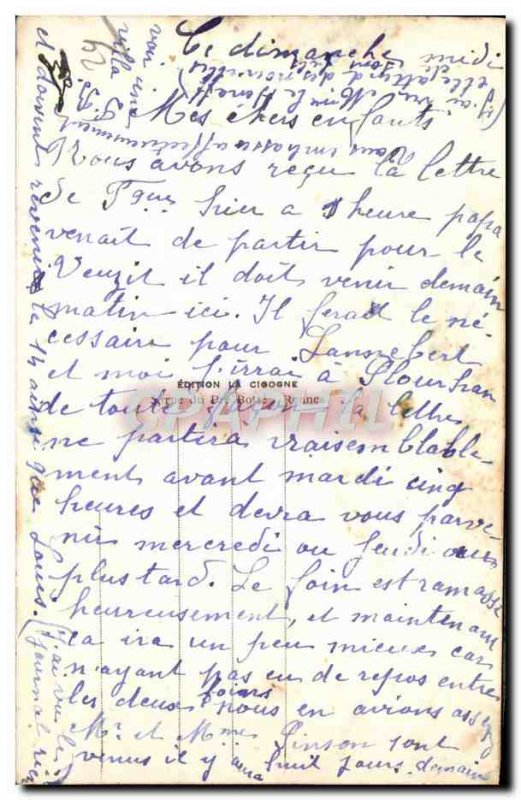 Ce dimanche midi
Mes chers enfants
Nous avons reçu la lettre
de hier a 1 heure papa
venait de partir pour le
Veuzit il doit venir demain
matin ici. Il ferait le né-
cessaire pour Lannebert
et moi j'irrai à Plourhan
ÉDITION LA CIGOGNE
de toute façon la lettre
ne partira vraisemblable-
ment avant mardi cinq
heures et devra vous parve-
nir mercredi ou jeudi au
plus tard. Le foin est ramassé
heureusement, et maintenant
ça ira un peu mieux car
n'ayant pas eu de repos entre
les deux foins nous en avions assez
Mr et Mme Pinson sont
venus il y aura huit jours demain
et doivent revenir le 14 ainsi que Louis. (J'ai vu les
journal
voir une
villa
Vous embrasse affectueusement